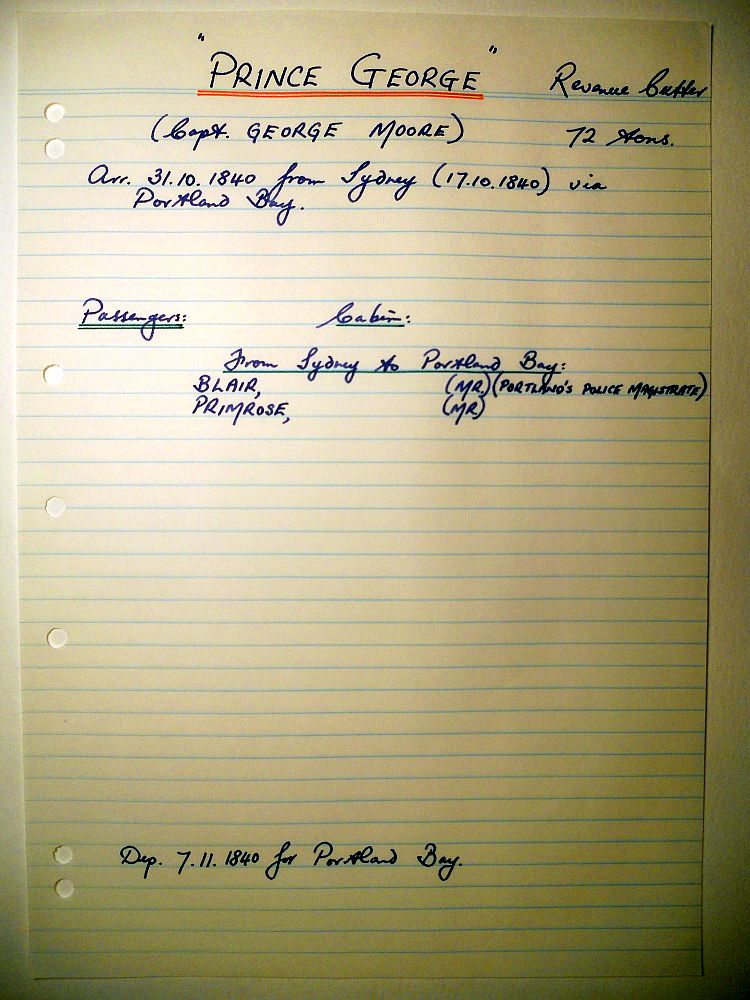 "PRINCE GEORGE" Revenue Cutter
(Capt. GEORGE MOORE) 72 tons.
Arr. 31.10.1840 from Sydney (17.10.1840) via
Portland Bay.
Passengers: Cabin:
From Sydney to Portland Bay:
BLAIR, (MR.) (PORTLAND'S POLICE MAGISTRATE)
PRIMROSE, (MR.)
Dep. 7.11.1840 for Portland Bay.